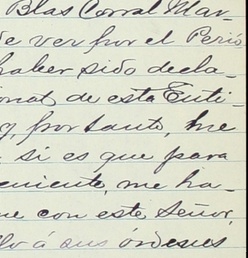 Blas Corral Mar-
de ver por el Perió
haber sido decla-
ional de esta Enti-
y, por tanto, me
si es que para
veniente, me ha-
me con este Señor,
llo á sus órdenes